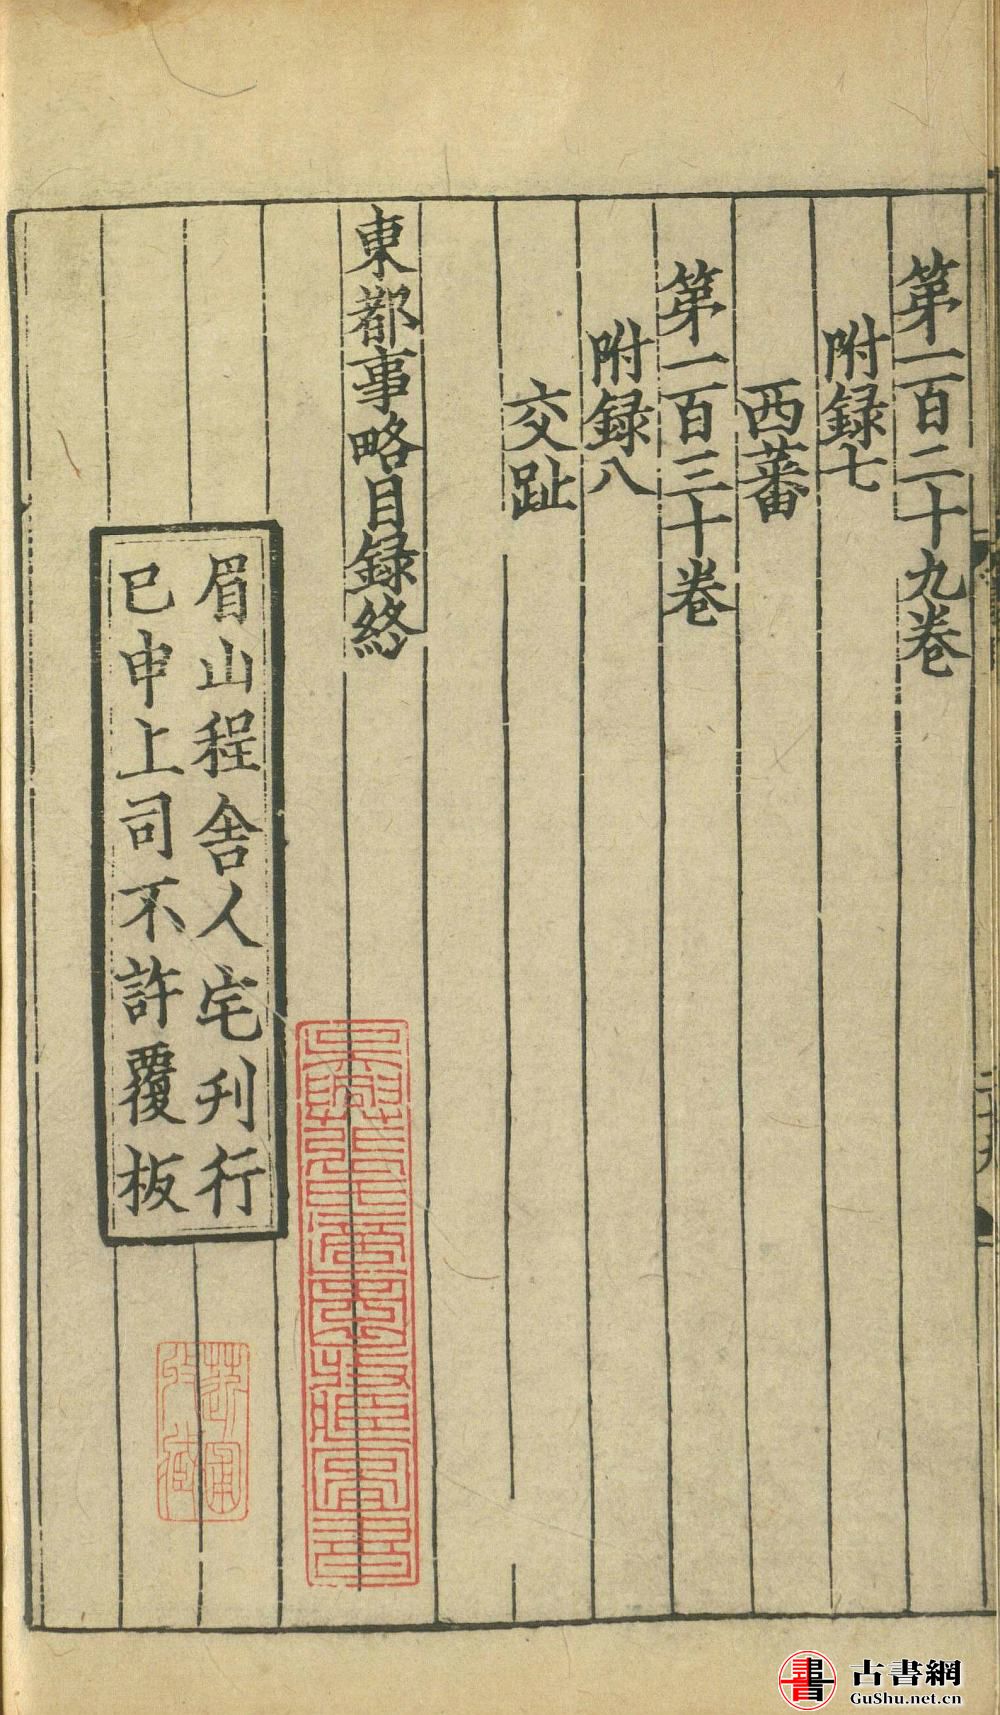 第一百二十九卷
附録七
西蕃
第一百三十卷
附録八
交趾
東都事略目録終
眉山程舎人宅刋行
已申上司不許覆板
古書網
GuShu.net.cn